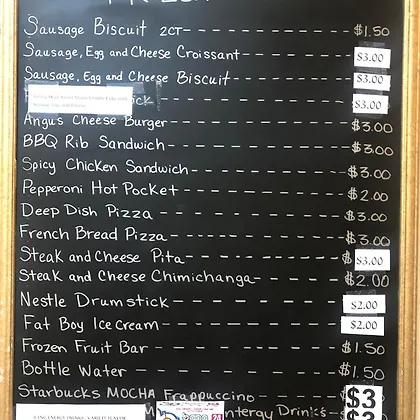 Sausage Biscuit 2CT $1.50
Sausage, Egg and Cheese Croissant $3.00
Sausage, Egg and Cheese Biscuit $3.00
$3.00
Angus Cheese Burger $3.00
BBQ Rib Sandwich $3.00
Spicy Chicken Sandwich $3.00
Pepperoni Hot Pocket $2.00
Deep Dish Pizza $3.00
French Bread Pizza $3.00
Steak and Cheese Pita $3.00
Steak and Cheese Chimichanga $2.00
Nestle Drumstick $2.00
Fat Boy Ice Cream $2.00
Frozen Fruit Bar $1.50
Bottle Water $1.50
Starbucks MOCHA Frappuccino $3
Drinks